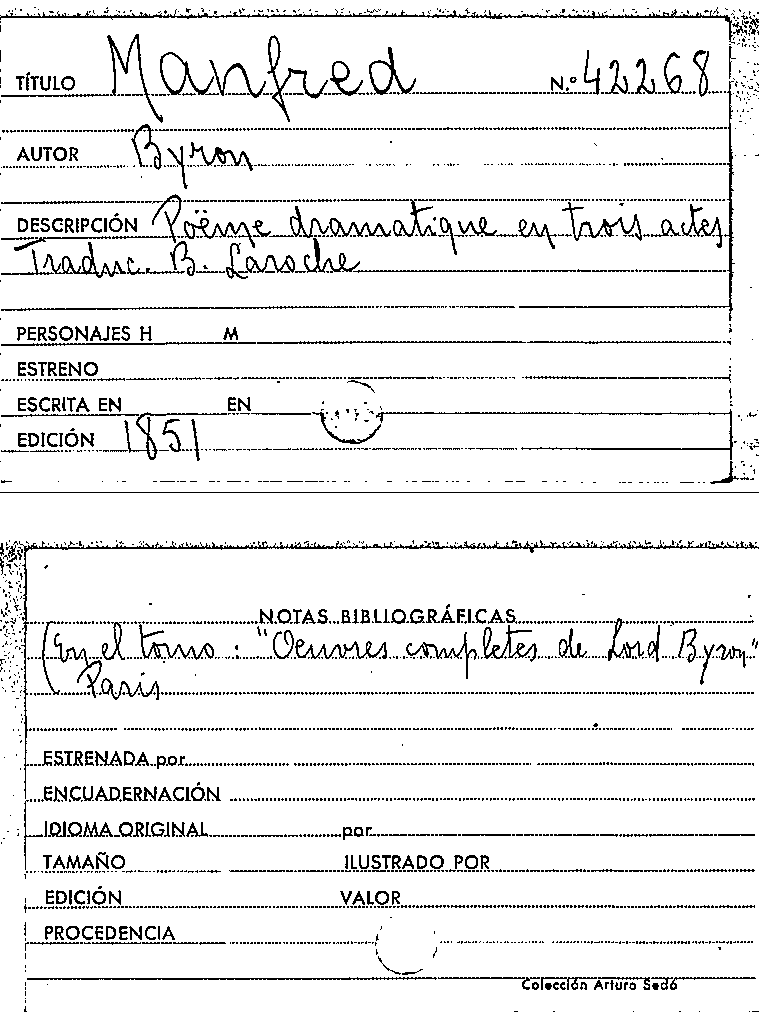 TÍTULO Manfred N.º 42268
AUTOR Byron
DESCRIPCIÓN Poëme dramatique en trois actes
Traduc. B. Laroche
PERSONAJES H M
ESTRENO
ESCRITA EN EN
EDICIÓN 1851
NOTAS BIBLIOGRÁFICAS
(En el tomo: "Oeuvres completes de Lord Byron"
Paris
ESTRENADA por
ENCUADERNACIÓN
IDIOMA ORIGINAL por
TAMAÑO ILUSTRADO POR
EDICIÓN VALOR
PROCEDENCIA
Colección Arturo Sedó